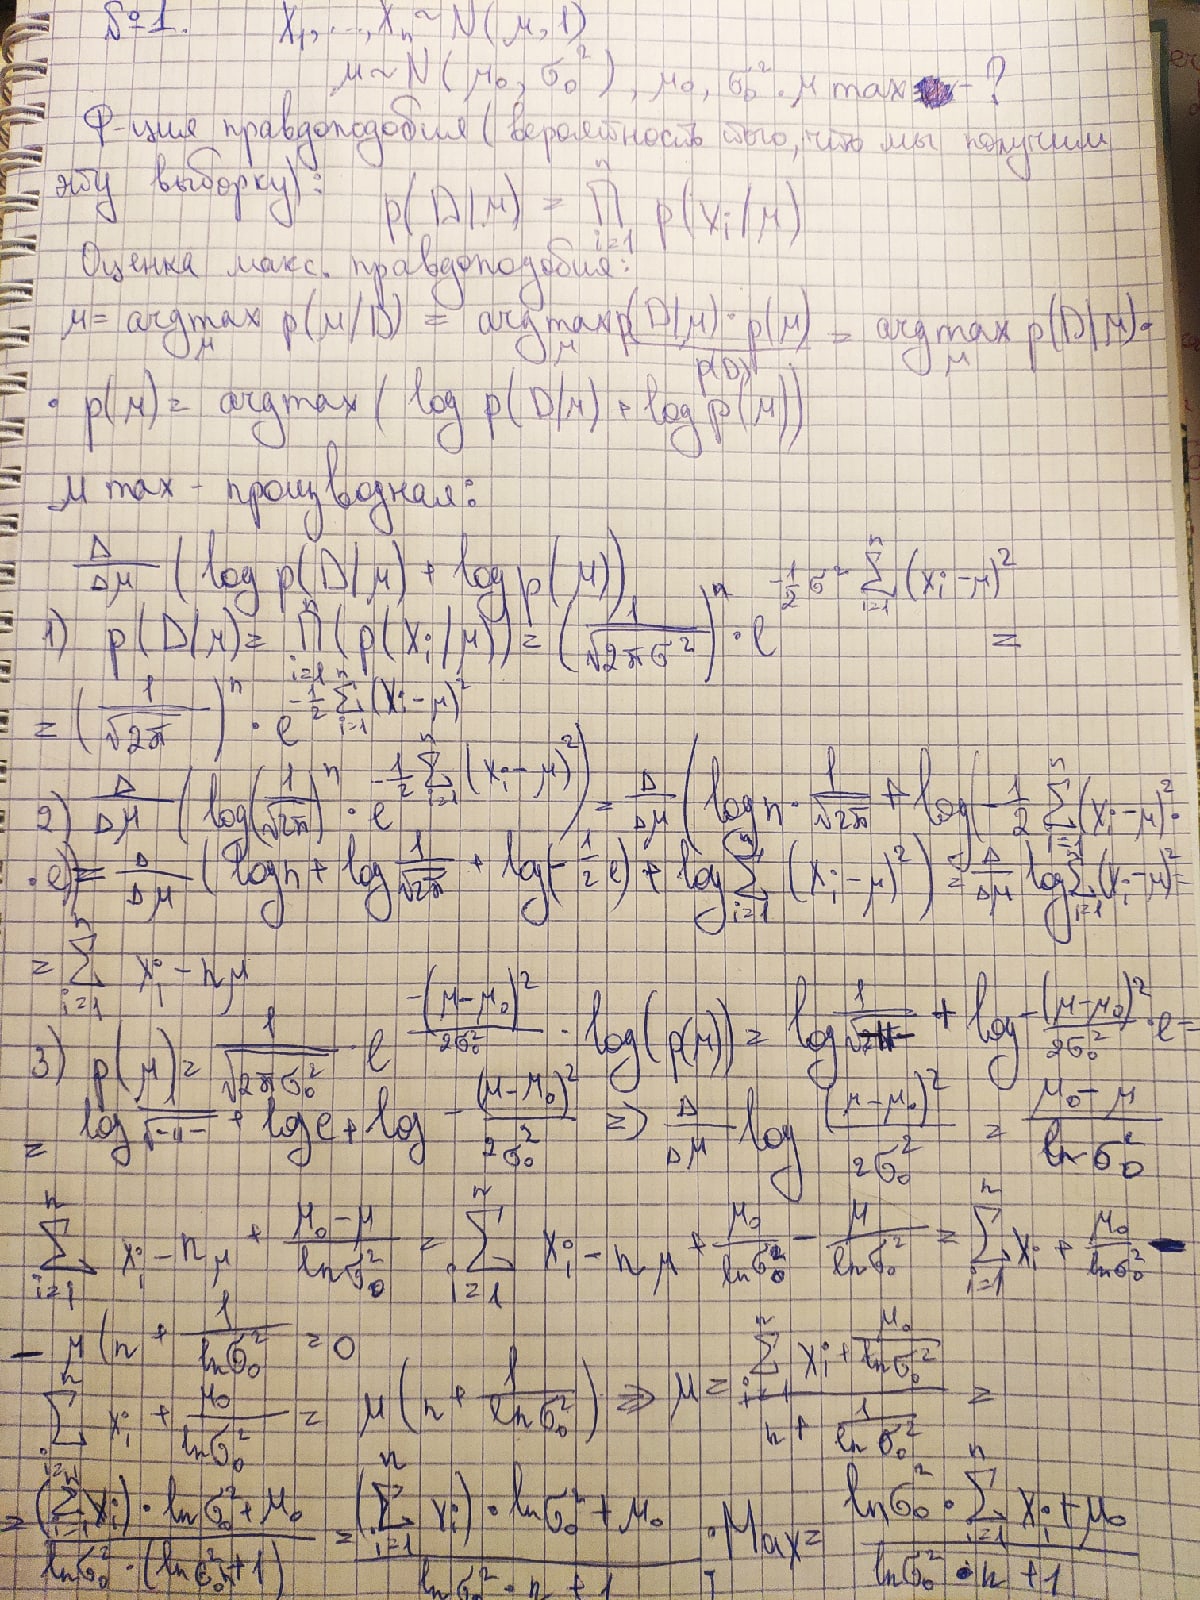 №1. X₁, ..., Xₙ ~ N(μ, 1)
μ ~ N(μ₀, σ₀²), μ₀, σ₀². μ max - ?
Ф-ция правдоподобия (вероятность того, что мы получим
эту выборку):
p(D|μ) = ∏ᵢ₌₁ⁿ p(xᵢ/μ)
Оценка макс. правдоподобия:
μ = argmax_μ p(μ/D) = argmax_μ p(D|μ)·p(μ) / p(D) = argmax_μ p(D|μ)·
· p(μ) = argmax (log p(D/μ) + log p(μ))
μ max - производная:
Δ/Δμ (log p(D/μ) + log p(μ))
1) p(D/μ) = ∏ᵢ₌₁ⁿ (p(xᵢ/μ)) = (1/√2πσ²)ⁿ · e^(-1/2 σ² Σᵢ₌₁ⁿ (xᵢ-μ)²) =
= (1/√2π)ⁿ · e^(-1/2 Σᵢ₌₁ⁿ (xᵢ-μ)²)
2) Δ/Δμ (log(1/√2π)ⁿ · e^(-1/2 Σᵢ₌₁ⁿ (xᵢ-μ)²)) = Δ/Δμ (log n · 1/√2π + log(-1/2 Σᵢ₌₁ⁿ (xᵢ-μ)² ·
· e)) = Δ/Δμ (log n + log 1/√2π + log(-1/2 e) + log Σᵢ₌₁ⁿ (xᵢ-μ)²) = Δ/Δμ log Σᵢ₌₁ⁿ (xᵢ-μ)² =
= Σᵢ₌₁ⁿ xᵢ - nμ
3) p(μ) = 1/√2πσ₀² e^(-(μ-μ₀)²/2σ₀²) · log(p(μ)) = log 1/√2π + log -(μ-μ₀)²/2σ₀² · e =
= log 1/√-"- + log e + log -(μ-μ₀)²/2σ₀² ⇒ Δ/Δμ log (μ-μ₀)²/2σ₀² = μ₀-μ/ln σ₀²
Σᵢ₌₁ⁿ xᵢ - nμ + μ₀-μ/ln σ₀² = Σᵢ₌₁ⁿ xᵢ - nμ + μ₀/ln σ₀² - μ/ln σ₀² = Σᵢ₌₁ⁿ xᵢ + μ₀/ln σ₀² -
- μ(n + 1/ln σ₀² = 0
Σᵢ₌₁ⁿ xᵢ + μ₀/ln σ₀² = μ(n + 1/ln σ₀²) ⇒ μ = (Σᵢ₌₁ⁿ xᵢ + μ₀/ln σ₀²) / (n + 1/ln σ₀²) =
= ((Σᵢ₌₁ⁿ xᵢ) · ln σ₀² + μ₀) / (ln σ₀² · (ln σ₀² n + 1)) = ((Σᵢ₌₁ⁿ xᵢ) · ln σ₀² + μ₀) / (ln σ₀² · n + 1) · μax = (ln σ₀² · Σᵢ₌₁ⁿ xᵢ + μ₀) / (ln σ₀² · n + 1)